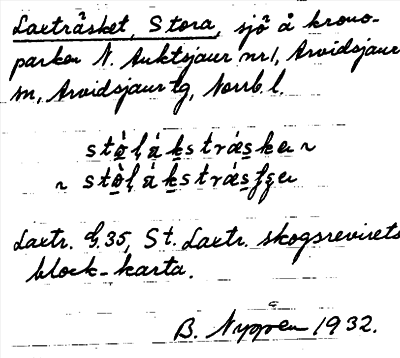 Laxträsket, Stora, sjö å krono-
parken N. Auktsjaur nr 1, Arvidsjaur
sn, Arvidsjaur tg, Norrb. l.
stò̱ḻá̱ḵstrá̱s̱ke̱n ~
~ stò̱ḻá̱ḵstrá̱s̱
Laxtr. 35, St. Laxtr. skogsrevirets
block-karta.
B. Nygren 1932.